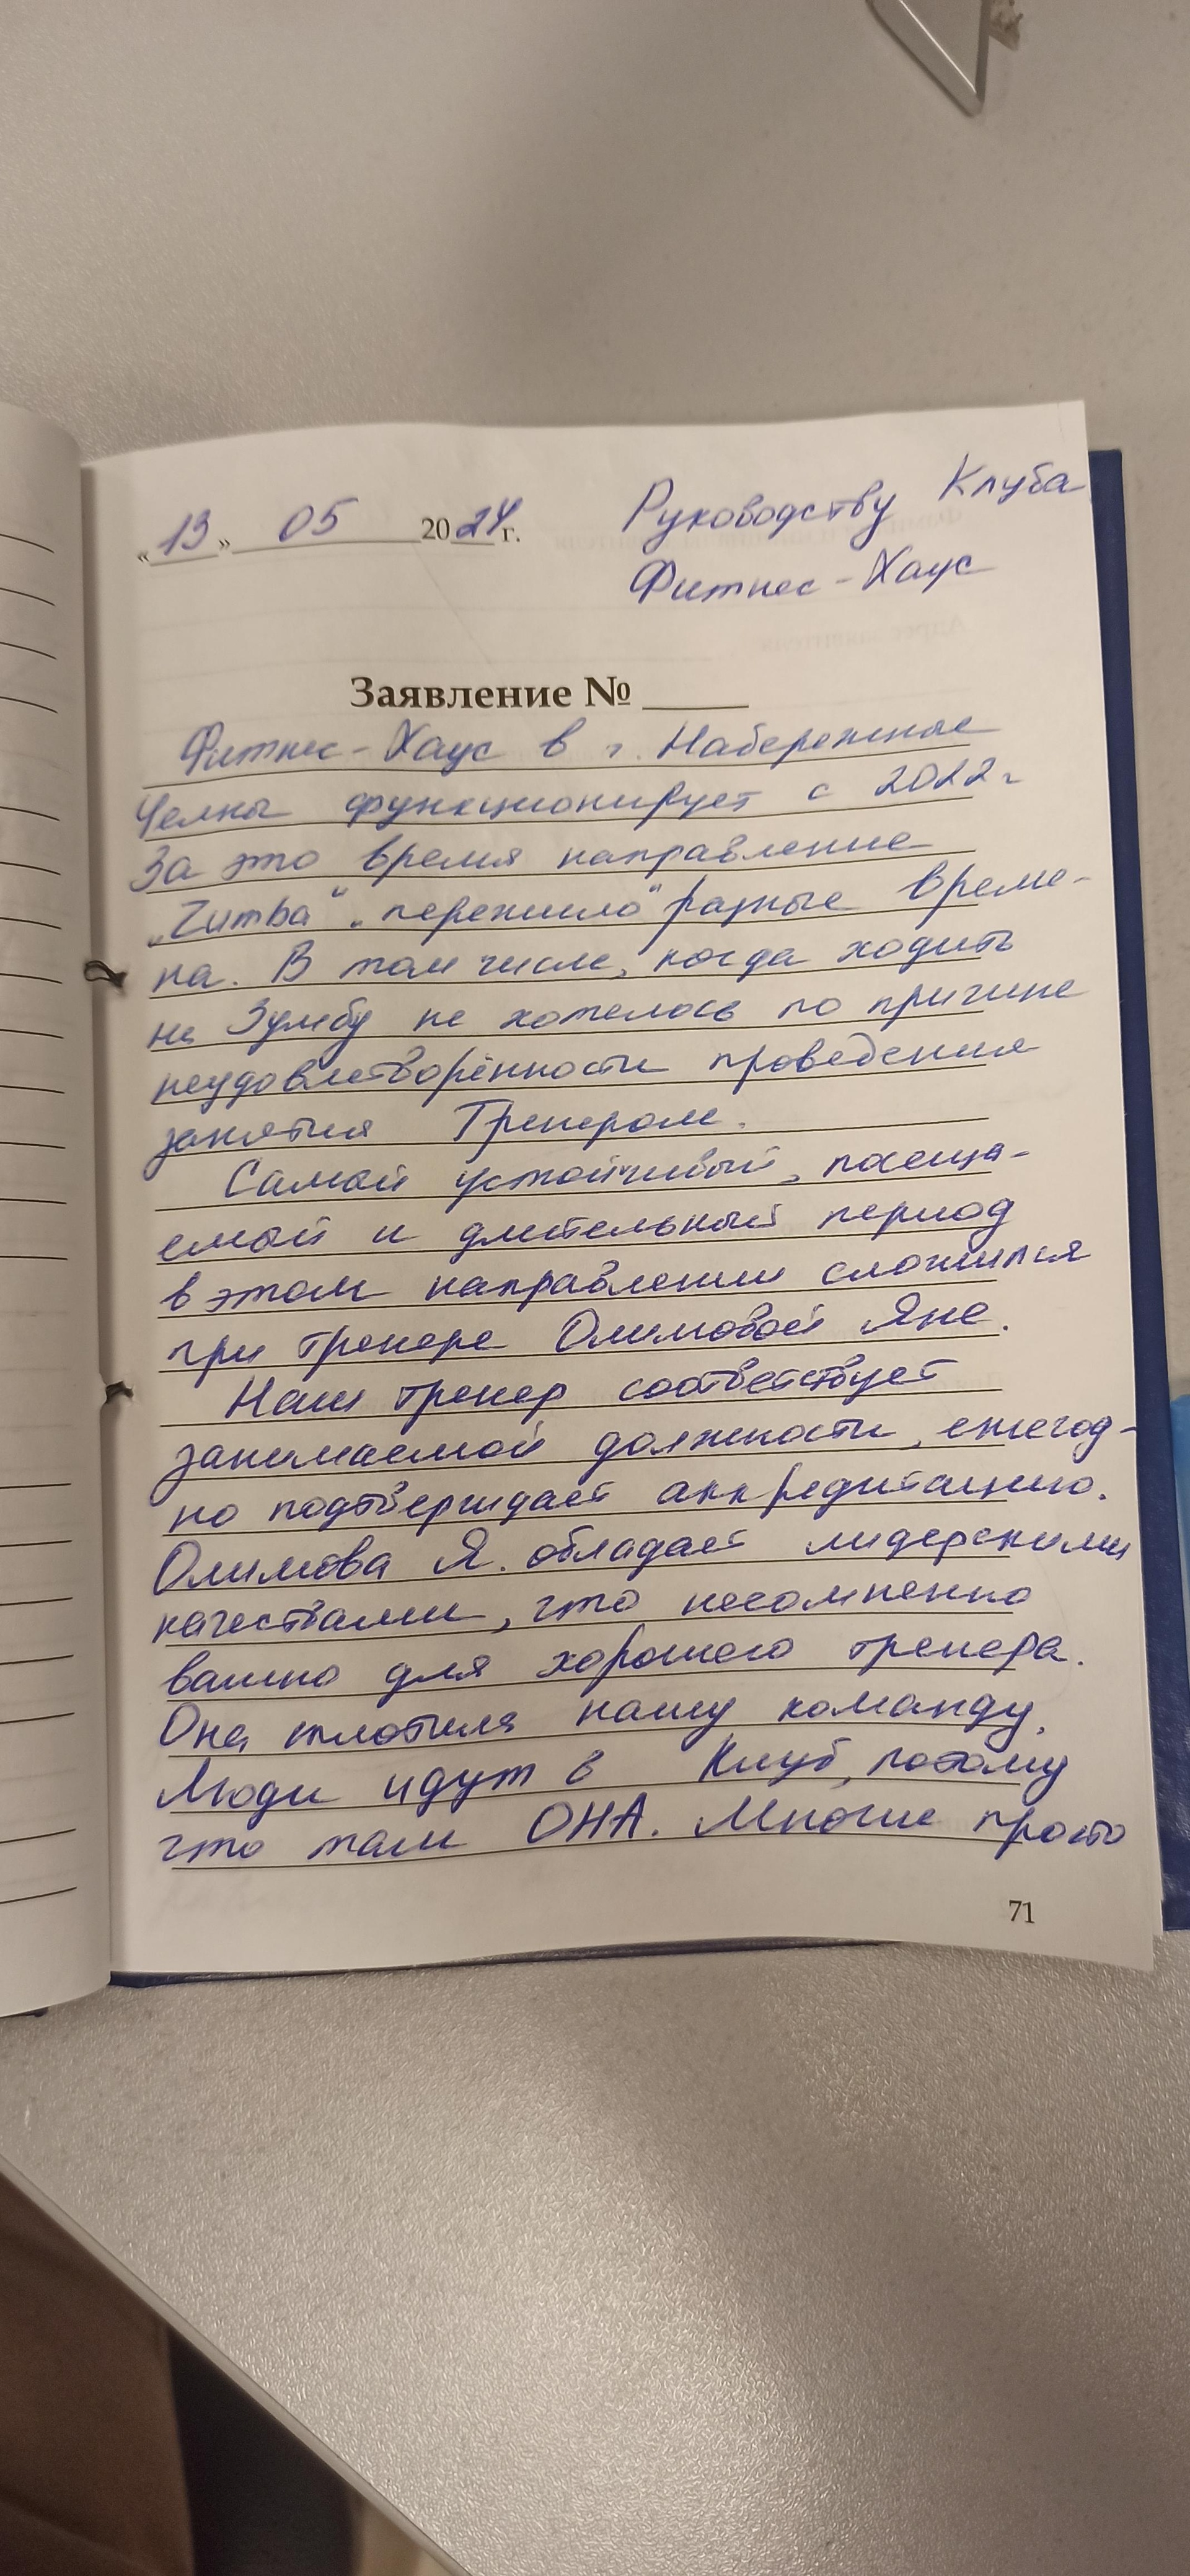 «13» 05 2024 г.
Руководству Клуба
Фитнес-Хаус
Заявление № ____
Фитнес-Хаус в г. Набережные
Челны функционирует с 2022г
За это время направление
„Zumba“ „пережило“ разные време-
на. В том числе, когда ходить
на Зумбу не хотелось по причине
неудовлетворённости проведения
занятия Тренером.
Самый устойчивый, посеща-
емый и длительный период
в этом направлении сложился
при тренере Олимовой Яне.
Наш тренер соответствует
занимаемой должности, ежегод-
но подтверждает аккредитацию.
Олимова Я. обладает лидерскими
качествами, что несомненно
важно для хорошего тренера.
Она сплотила нашу команду.
Люди идут в Клуб, потому
что там ОНА. Многие просто
71